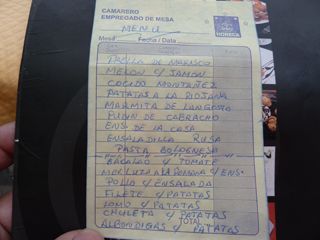 CAMARERO
EMPREGADO DE MESA
HORECA
MENU
Mesa Fecha / Data
PAELLA DE MARISCO
MELON C/ JAMON
COCIDO MONTAÑEZ
PATATAS A LA RIOJANA
MARMITA DE LANGOSTO
PUDIN DE CABRACHO
ENS. DE LA CASA
ENSALADILLA RUSA
PASTA BOLOGNESA
BACALAO C/ TOMATE
MERLUZA A LA ROMANA C/ ENS.
POLLO C/ ENSALADA
FILETE C/ PATATAS
LOMO C/ PATATAS
CHULETA C/ PATATAS
TOTAL
ALBONDIGAS C/ PATATAS